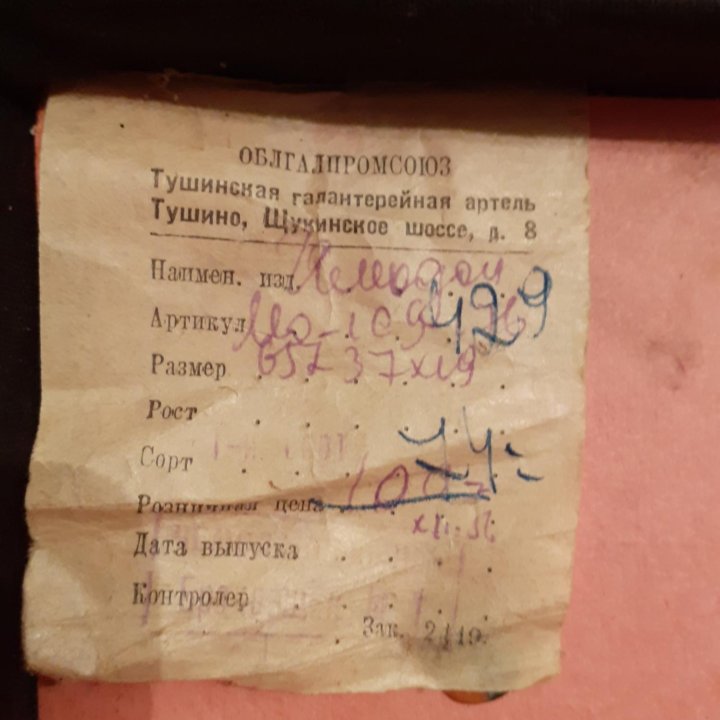 ОБЛГАЛПРОМСОЮЗ
Тушинская галантерейная артель
Тушино, Щукинское шоссе, д. 8
Наимен. изд. Чемодан
Артикул 429
Размер 65х37х19
Рост
Сорт
Розничная цена
Дата выпуска
Контролер
Зак. 2419.